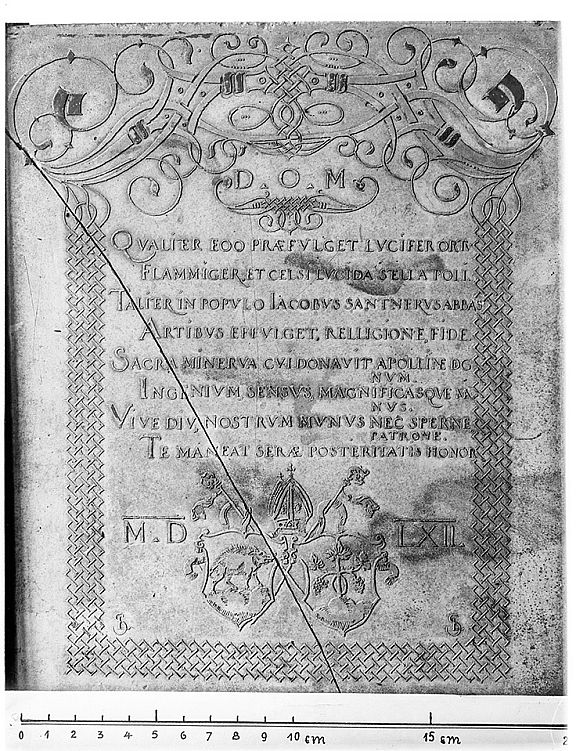 D. O. M.
QVALITER EOO PRÆFVLGET LVCIFER ORT
FLAMMIGER ET CELSI LVCIDA STELLA POLI.
TALITER IN POPVLO IACOBVS SANTNERVS ABBAS
ARTIBVS EFFVLGET, RELLIGIONE, FIDE.
SACRA MINERVA CVI DONAVIT APOLLINE DO
NVM.
INGENIVM SENSVS, MAGNIFICASQVE MA
NVS.
VIVE DIV, NOSTRVM MVNVS NEC SPERNE
PATRONE.
TE MANEAT SERÆ POSTERITATIS HONOR
M.D LXII
0 1 2 3 4 5 6 7 8 9 10 cm 15 cm 2